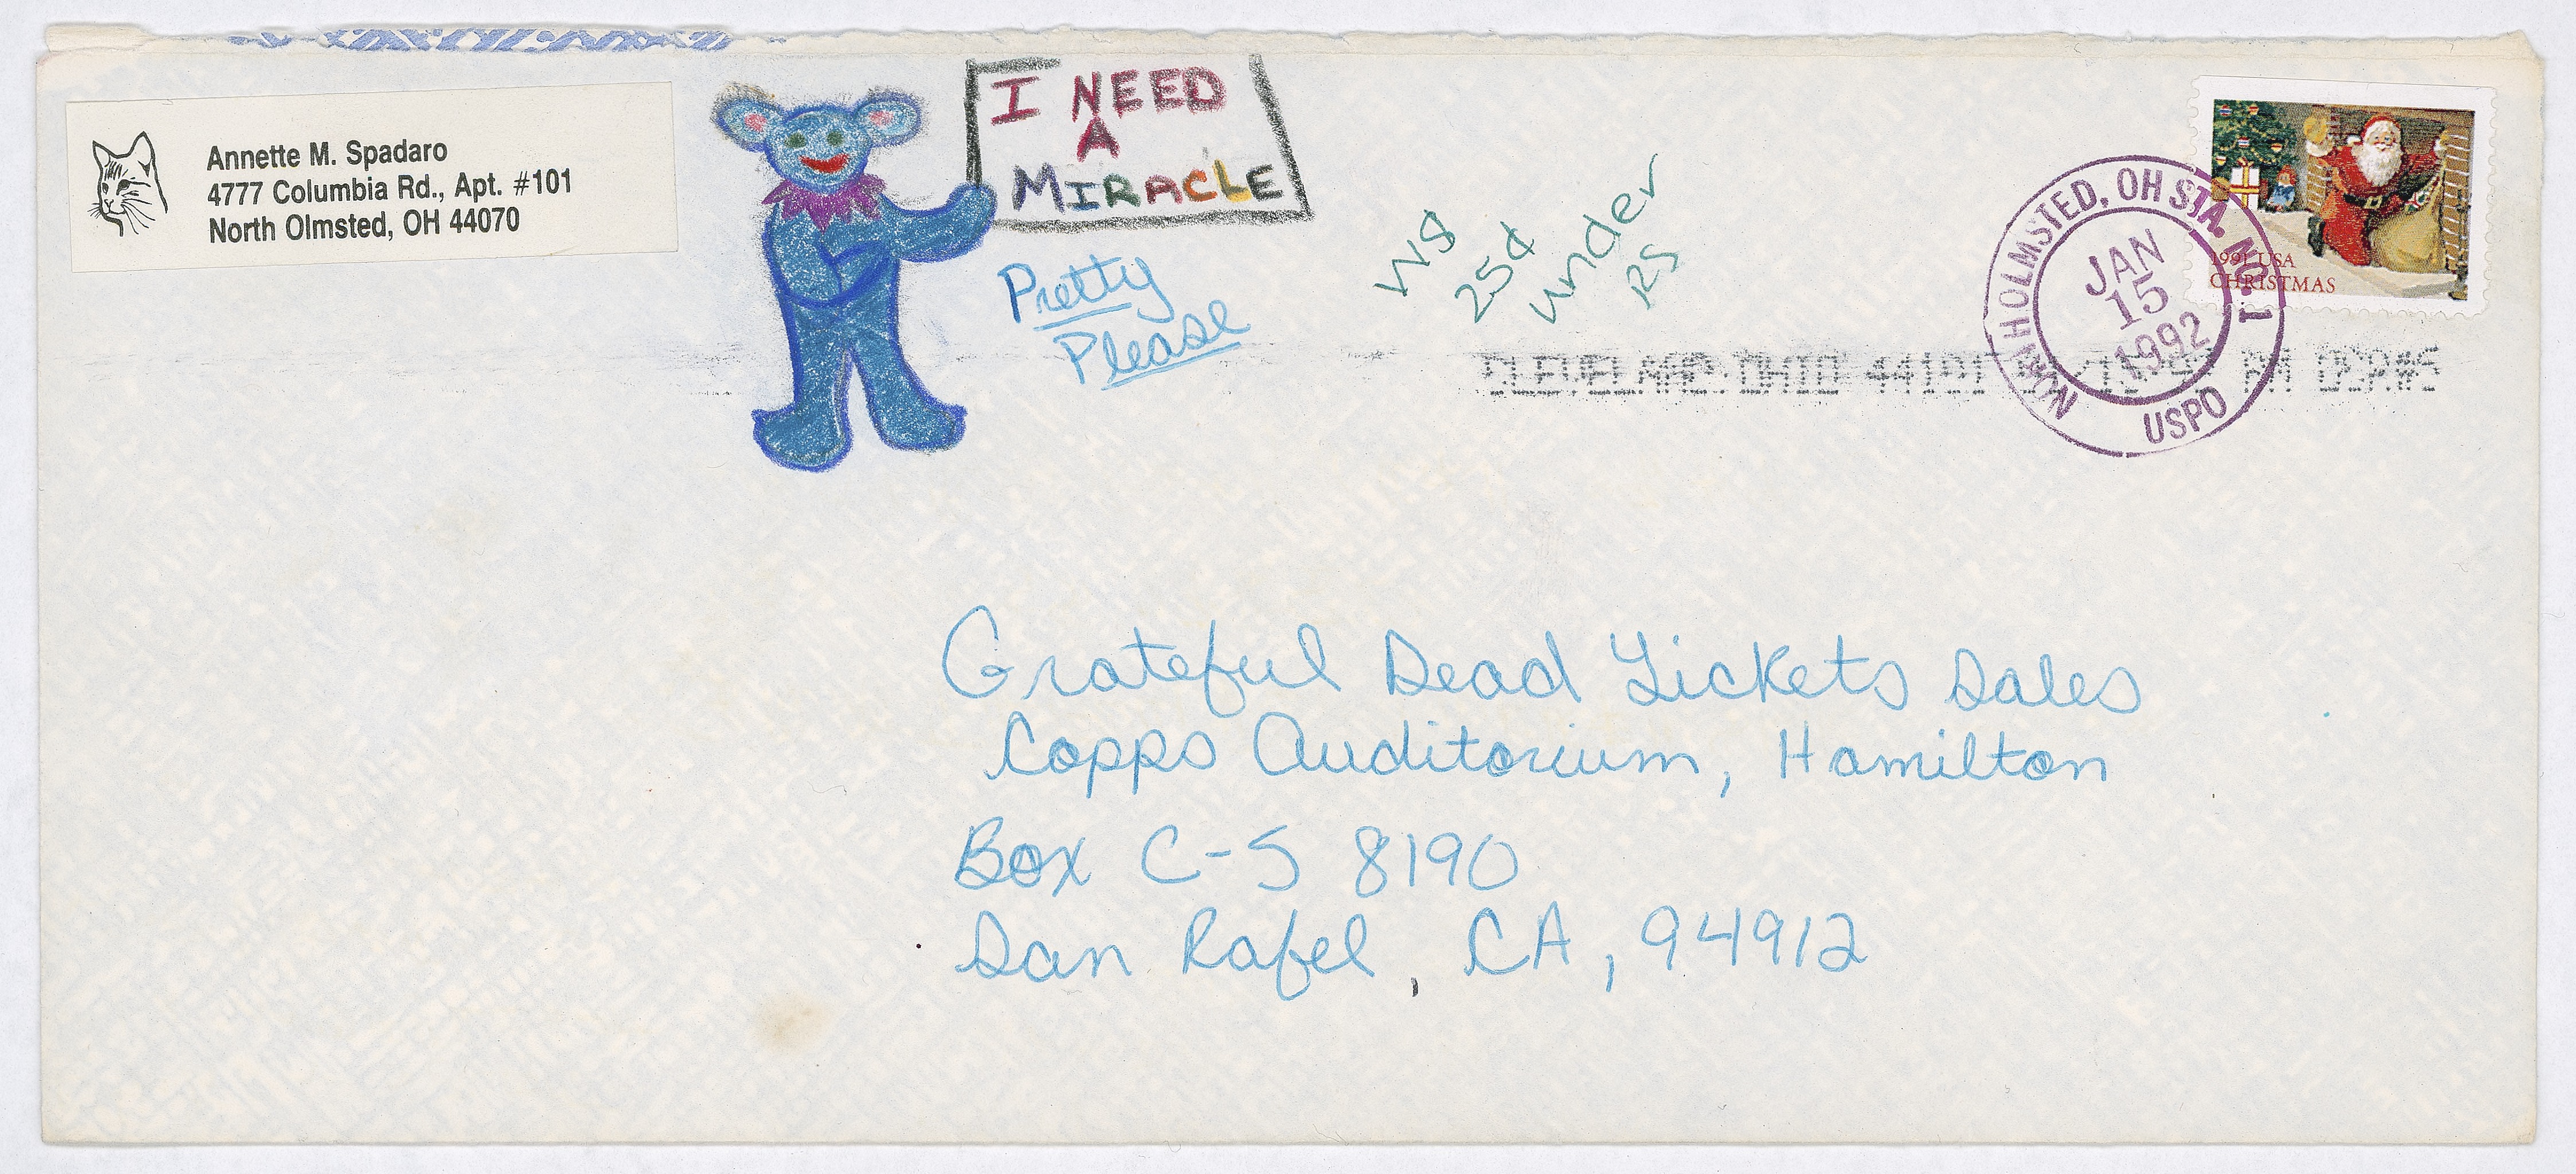 Annette M. Spadaro
4777 Columbia Rd., Apt. #101
North Olmsted, OH 44070
I NEED
A
MIRACLE
Pretty
Please
25¢
under
RS
1991 USA
CHRISTMAS
NORTH OLMSTED, OH STA. NO. 1
JAN
15
1992
USPO
CLEVELAND, OHIO 44101 PM DSP#5
Grateful Dead Tickets Sales
Copps Auditorium, Hamilton
Box C-S 8190
San Rafel, CA, 94912